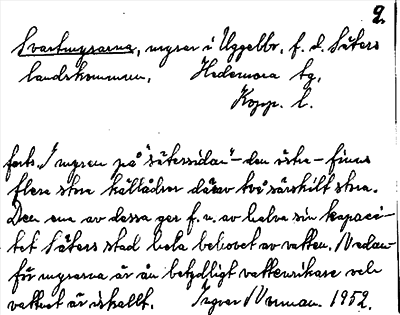 2.
Svartmyrarna, myrar i Uggelbo, f. d. Säters
landskommun, Hedemora tg,
Kopp. l.
forts. I myren på "sätersidan" – den östra – finns
flera stora källådror därav två särskilt stora.
Den ena av dessa ger f. n. av halva sin kapaci-
tet Säters stad hela behovet av vatten. Nedan-
för myrarna är ån betydligt vattenrikare och
vattnet är iskallt. Ingvar Norman 1952.